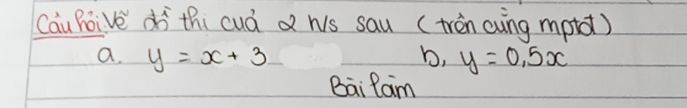 Câu hỏi Vẽ đồ thị cuả 2 h/s sau (trên cùng mptđ)
a. y = x + 3 b, y = 0,5x
Bài làm